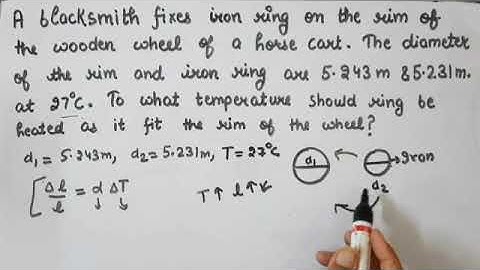 A blacksmith fixes iron ring on the rim of
the wooden wheel of a horse cart. The diameter
of the rim and iron ring are 5.243 m & 5.231 m.
at 27°C. To what temperature should ring be
heated as it fit the rim of the wheel?
d₁ = 5.243m, d₂ = 5.231m, T = 27°C
d₁
Iron
d₂
[Δl/l = α ΔT
T↑ l↑